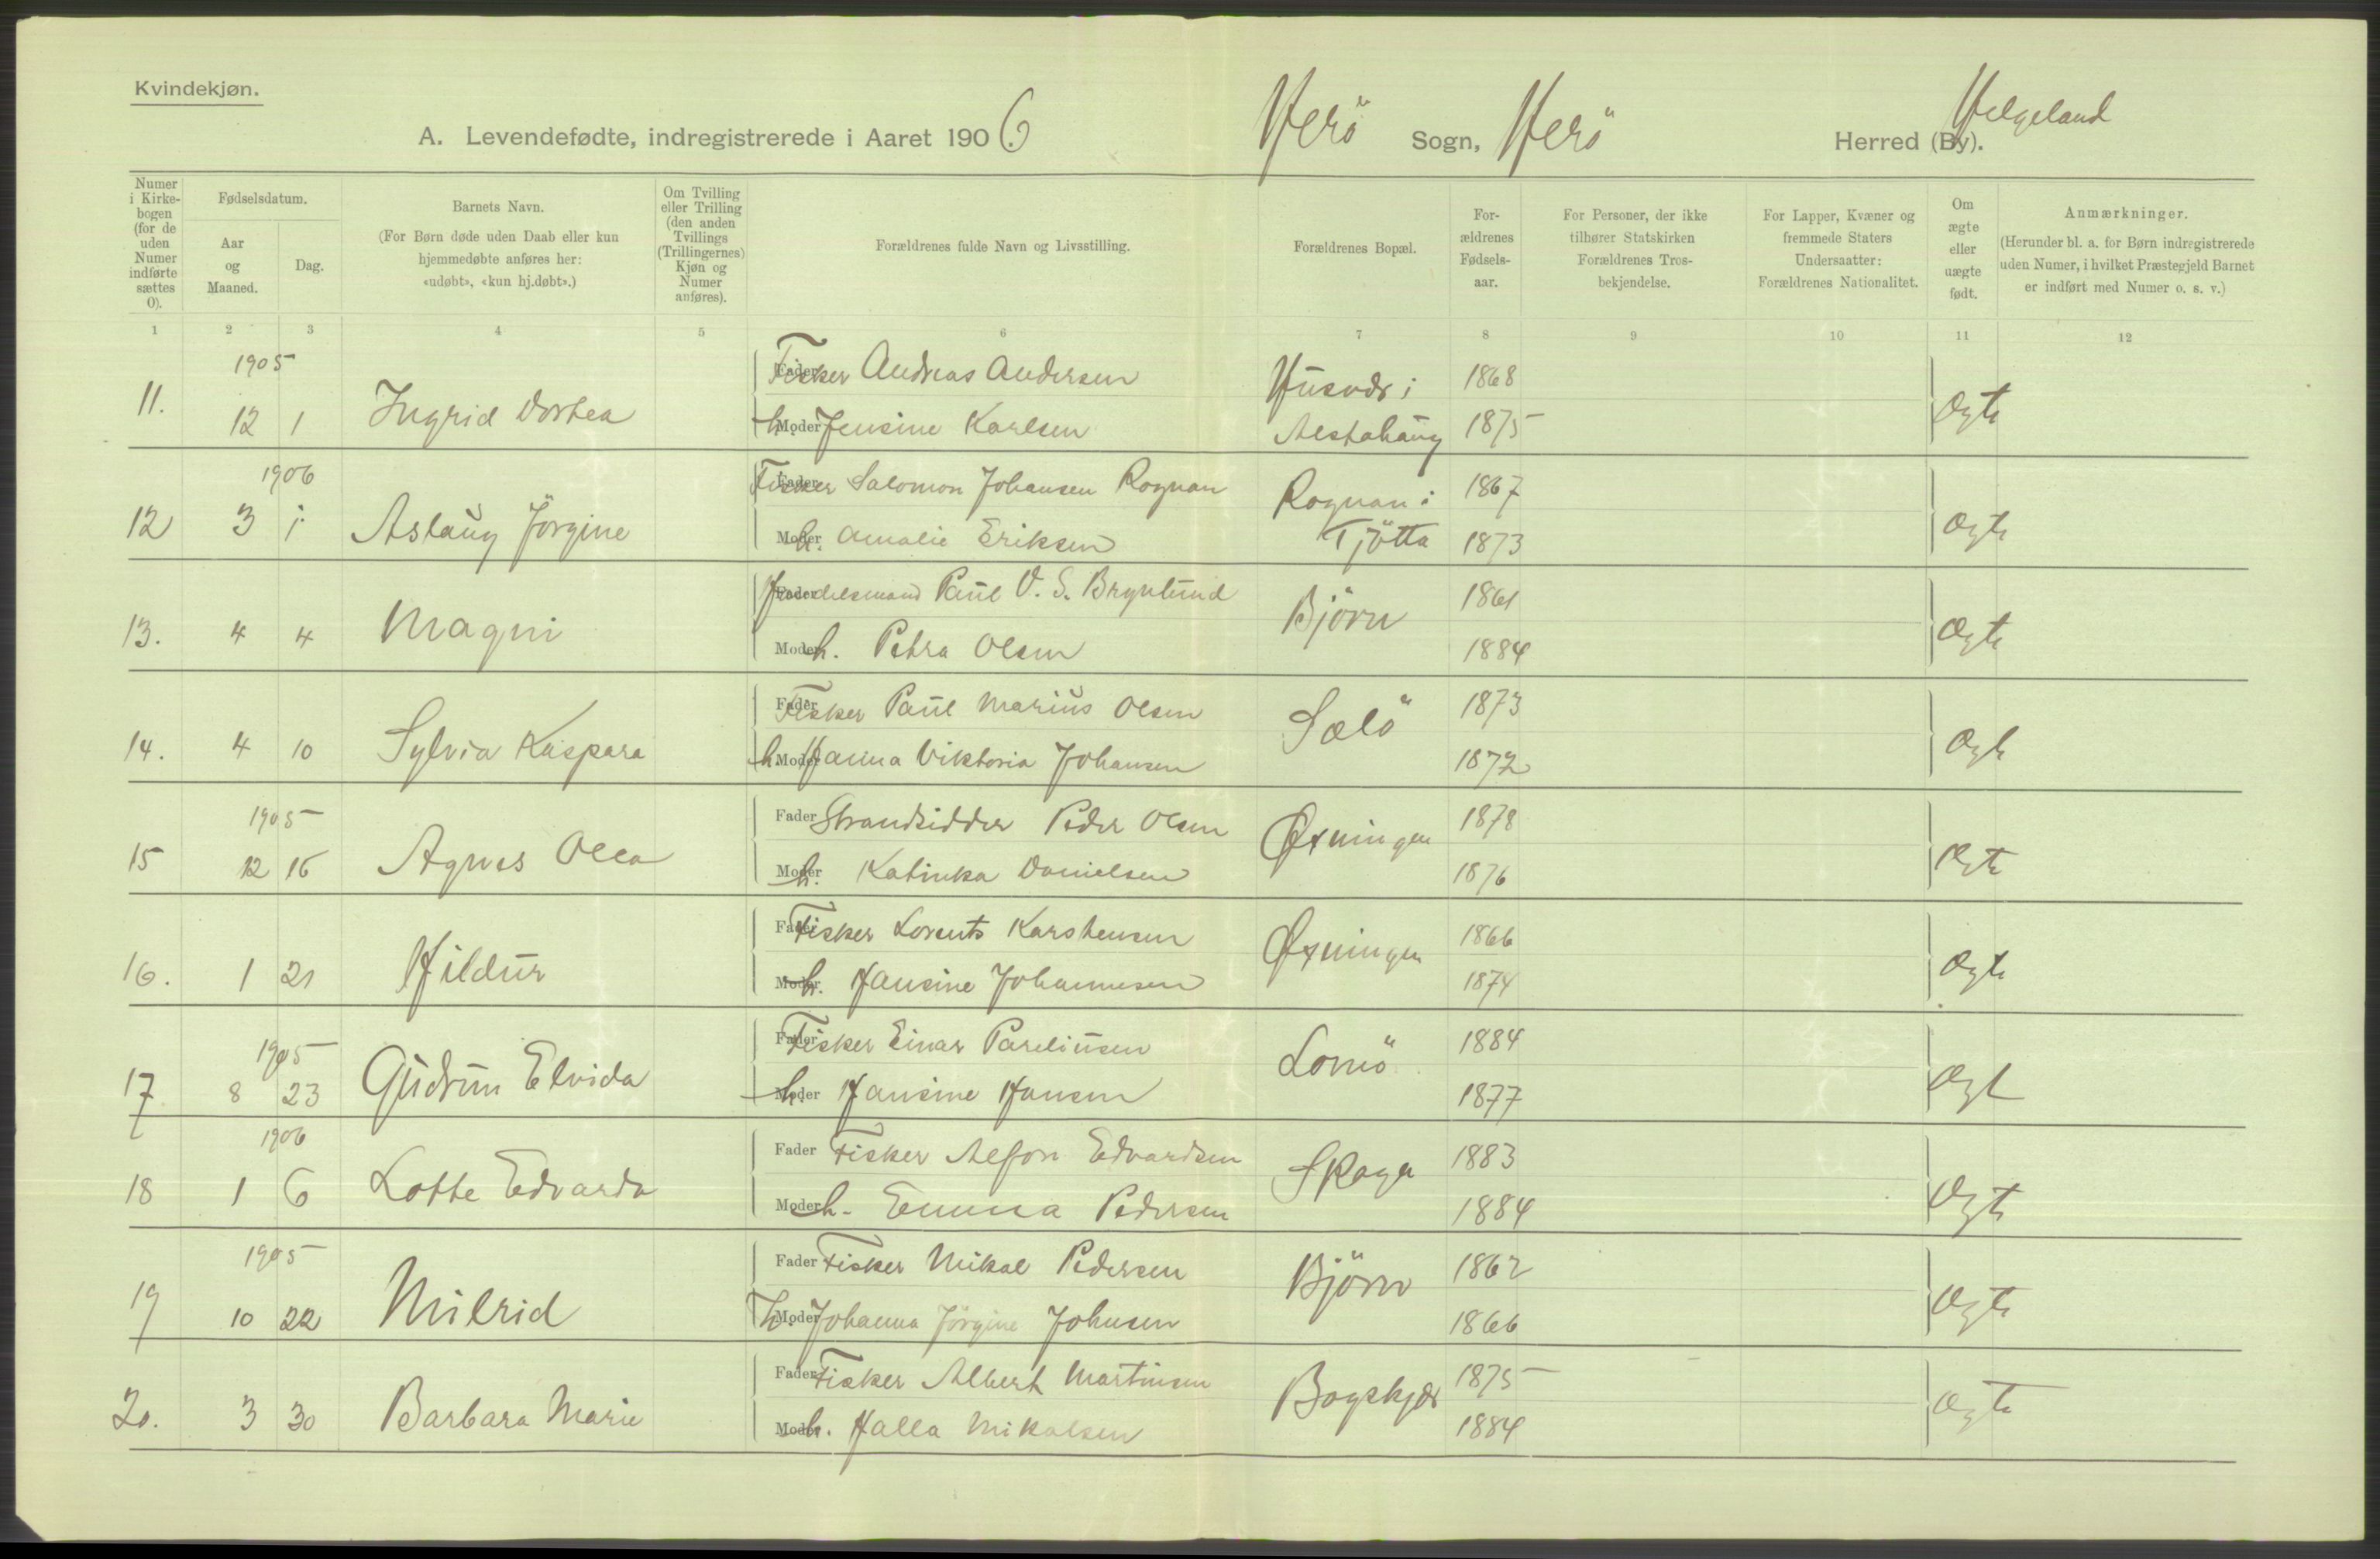 Kvindekjøn.
A. Levendefødte, indregistrerede i Aaret 1906. Herö Sogn, Herö Herred (By). Helgeland
Numer i Kirkebogen (for de uden Numer indførte sættes 0).
Fødselsdatum.
Aar og Maaned.
Dag.
Barnets Navn.
(For Børn døde uden Daab eller kun hjemmedøbte anføres her: «udøbt», «kun hj.døbt».)
Om Tvilling eller Trilling (den anden Tvillings (Trillingernes) Kjøn og Numer anføres).
Forældrenes fulde Navn og Livsstilling.
Forældrenes Bopæl.
Forældrenes Fødselsaar.
For Personer, der ikke tilhører Statskirken Forældrenes Trosbekjendelse.
For Lapper, Kvæner og fremmede Staters Undersaatter: Forældrenes Nationalitet.
Om ægte eller uægte født.
Anmærkninger.
(Herunder bl. a. for Børn indregistrerede uden Numer, i hvilket Præstegjeld Barnet er indført med Numer o. s. v.)
1 2 3 4 5 6 7 8 9 10 11 12
1905
Fader Fisker Andreas Andersen Husvær i 1868
11. 12 1 Ingrid Dortea Moder h. Jensine Karlsen Alstahaug 1875 Ægte
1906
Fader Fisker Salomon Johansen Rognan Rognan i 1867
12 3 1 Aslaug Jörgine Moder h. Amalie Eriksen Tjötta 1873 Ægte
Fader Handelsmand Paul V. S. Brynlund Björn 1861
13. 4 4 Magni Moder h. Petra Olsen 1884 Ægte
Fader Fisker Paul Marius Olsen Salö 1873
14. 4 10 Sylvia Kaspara Moder h. Hanna Viktoria Johansen 1872 Ægte
1905
Fader Strandsidder Peder Olsen Øxningen 1878
15 12 16 Agnes Olea Moder h. Katinka Danielsen 1876 Ægte
Fader Fisker Lorents Karstensen Øxningen 1866
16. 1 21 Hildur Moder h. Hansine Johannesen 1874 Ægte
1905
Fader Fisker Einar Pareliusen Lornö 1884
17 8 23 Gudrun Elvida Moder h. Hansine Hansen 1877 Ægte
1906
Fader Fisker Alfon Edvardsen Skaga 1883
18 1 6 Lotte Edvarda Moder h. Emma Pedersen 1884 Ægte
1905
Fader Fisker Mikal Pedersen Björn 1862
19 10 22 Milrid Moder h. Johanna Jörgine Johnsen 1866 Ægte
Fader Fisker Albert Martinsen Bogskjær 1875
20. 3 30 Barbara Marie Moder h. Halla Mikalsen 1884 Ægte